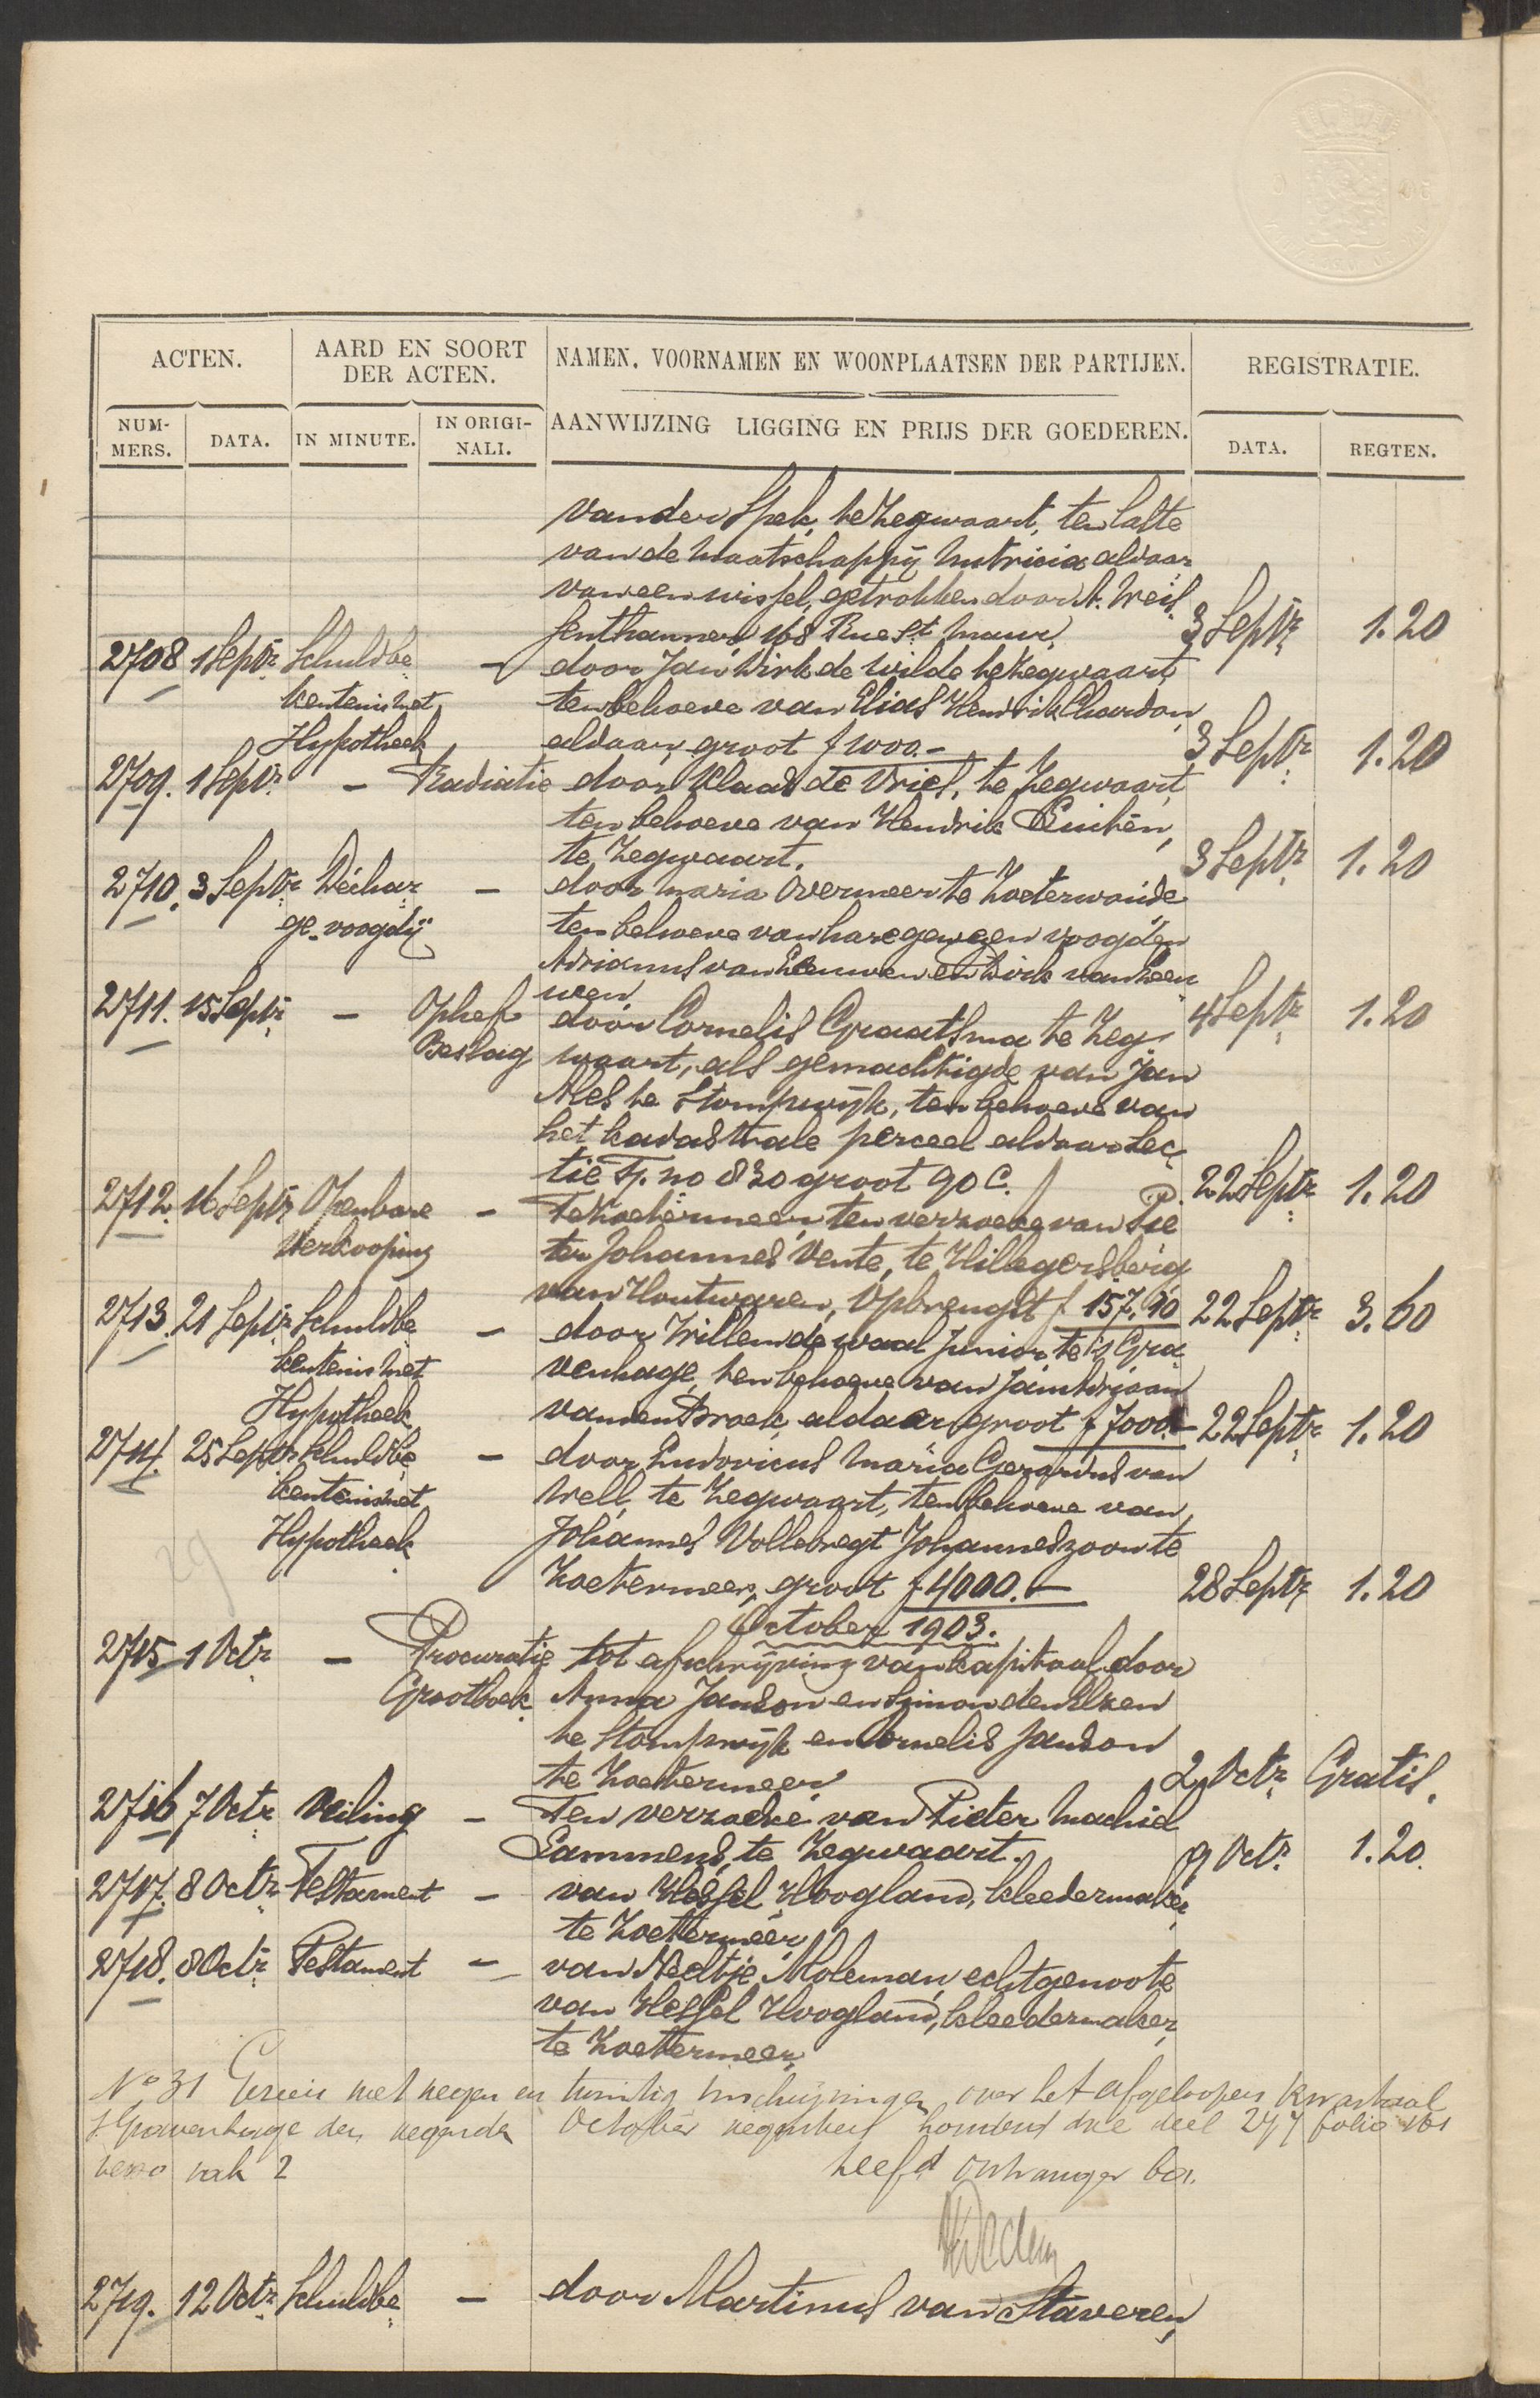 ACTEN.
AARD EN SOORT
DER ACTEN.
NAMEN, VOORNAMEN EN WOONPLAATSEN DER PARTIJEN.
REGISTRATIE.
NUM-
MERS.
DATA.
IN MINUTE.
IN ORIGI-
NALI.
AANWIJZING LIGGING EN PRIJS DER GOEDEREN.
DATA.
REGTEN.
van der Spek, te Zegwaart, ten laste
van de Maatschappij Nutricia aldaar
van een wissel, getrokken door A. Weil
168 Rue St Maur, 3 Septr 1.20
2708 1 Septr Schuldbe - door Jan Dirk de Wilde te Zegwaart,
kentenis met ten behoeve van Elias Hendrik Chardon,
Hypotheek aldaar, groot f 1000.- 3 Septr 1.20
2709. 1 Septr - Radiatie door Klaas de Vries, te Zegwaart,
ten behoeve van Hendrik
te Zegwaart. 3 Septr 1.20
2710. 3 Septr Déchar - door Maria Overmeer te Zoeterwoude
ge voogdij ten behoeve van hare gewezen voogden
Adrianus van Leeuwen en Dirk van Leeu
wen. 4 Septr 1.20
2711. 15 Septr - Ophef door Cornelis Graatsma te Zeg
Beslag waart, als gemachtigde van Jan
Mes te Stompwijk, ten behoeve van
het kadastrale perceel aldaar Sec
tie F. no 830 groot 90 c. 22 Septr 1.20
2712. 16 Septr Openbare - Te Zoetermeer, ten verzoeke van Pie
Verkooping ter Johannes Vente, te Hillegersberg
van Houtwaren, Opbrengst f 157.90 22 Septr 3.60
2713. 21 Septr Schuldbe - door Willem de Waal Junior, te 's Gra
kentenis met venhage, ten behoeve van Jan Adriaan
Hypotheek van den Broek, aldaar groot f 7000.- 22 Septr 1.20
2714. 25 Septr Schuldbe - door Ludovicus Maria Gerardus van
kentenis met Well, te Zegwaart, ten behoeve van
Hypotheek. Johannes Vollebregt Johanneszoon te
29
Zoetermeer, groot f 4000.- 28 Septr 1.20
October 1903.
2715 1 Octr - Procuratie tot afschrijving van kapitaal door
Grootboek. Anna Janson en Simon den Elzen
te Stompwijk en Cornelis Janson
te Zoetermeer. 2 Octr Gratis.
2716 7 Octr Veiling - Ten verzoeke van Pieter Machiel
Lammens, te Zegwaart. 9 Octr. 1.20
2717. 8 Octr Testament - van Hessel Hoogland, kleedermaker,
te Zoetermeer,
2718. 8 Octr Testament - van Neeltje Moleman, echtgenoote
van Hessel Hoogland, kleedermaker,
te Zoetermeer.
No 31 Gezien met negen en twintig inschrijvingen over het afgeloopen kwartaal
's Gravenhage den negende October negentien honderd drie deel 277 folio 161
verso vak 2
2719. 12 Octr Schuldbe - door Martinus van Staveren,